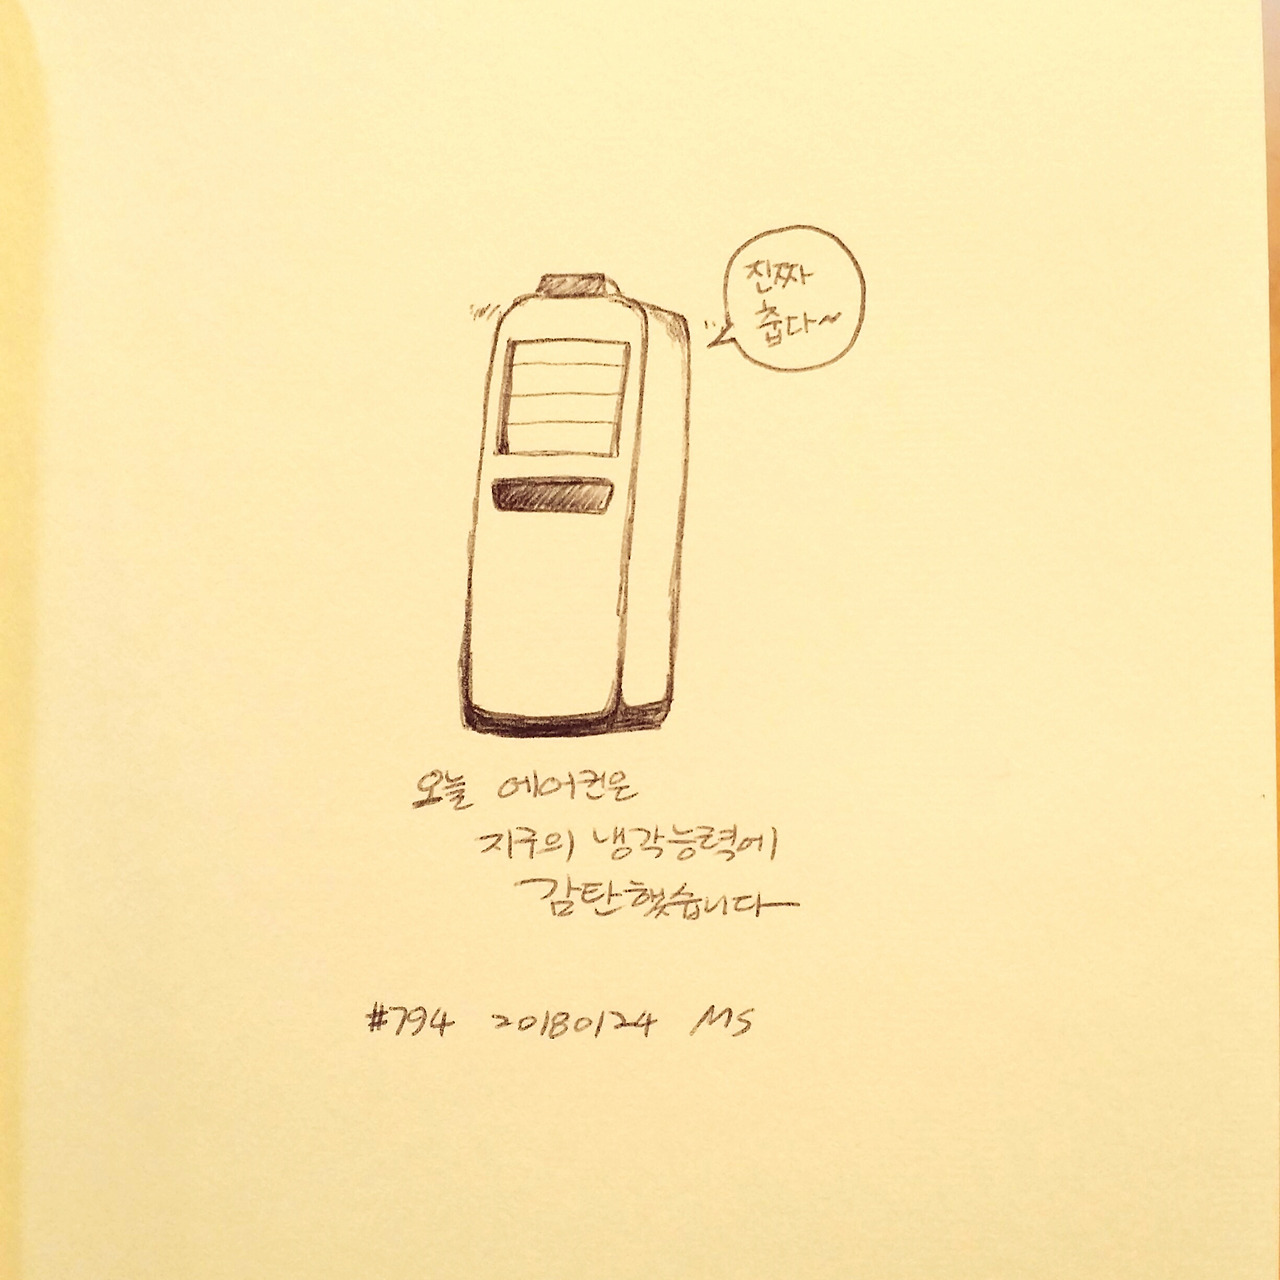 진짜
춥다~
오늘 에어컨은
지구의 냉각능력에
감탄했습니다
#794 20180124 MS